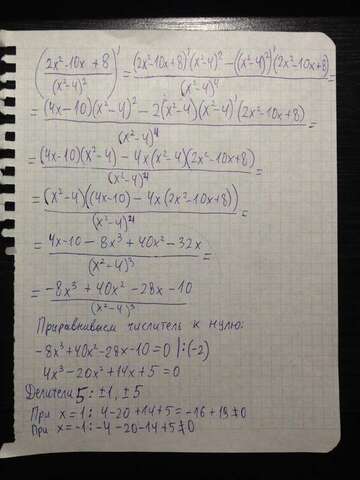 (2x²-10x+8 / (x²-4)²)' = ((2x²-10x+8)'(x²-4)² - ((x²-4)²)'(2x²-10x+8)) / (x²-4)⁴ =
= ((4x-10)(x²-4)² - 2(x²-4)(x²-4)'(2x²-10x+8)) / (x²-4)⁴ =
= ((4x-10)(x²-4) - 4x(x²-4)(2x²-10x+8)) / (x²-4)⁴ =
= (x²-4)((4x-10) - 4x(2x²-10x+8)) / (x²-4)⁴ =
= (4x-10 - 8x³ + 40x² - 32x) / (x²-4)³ =
= (-8x³ + 40x² - 28x - 10) / (x²-4)³
Приравниваем числитель к нулю:
-8x³+40x²-28x-10=0 |:(-2)
4x³-20x²+14x+5=0
Делители 5: ±1, ±5
При x=1: 4-20+14+5=-16+19≠0
При x=-1: -4-20-14+5≠0